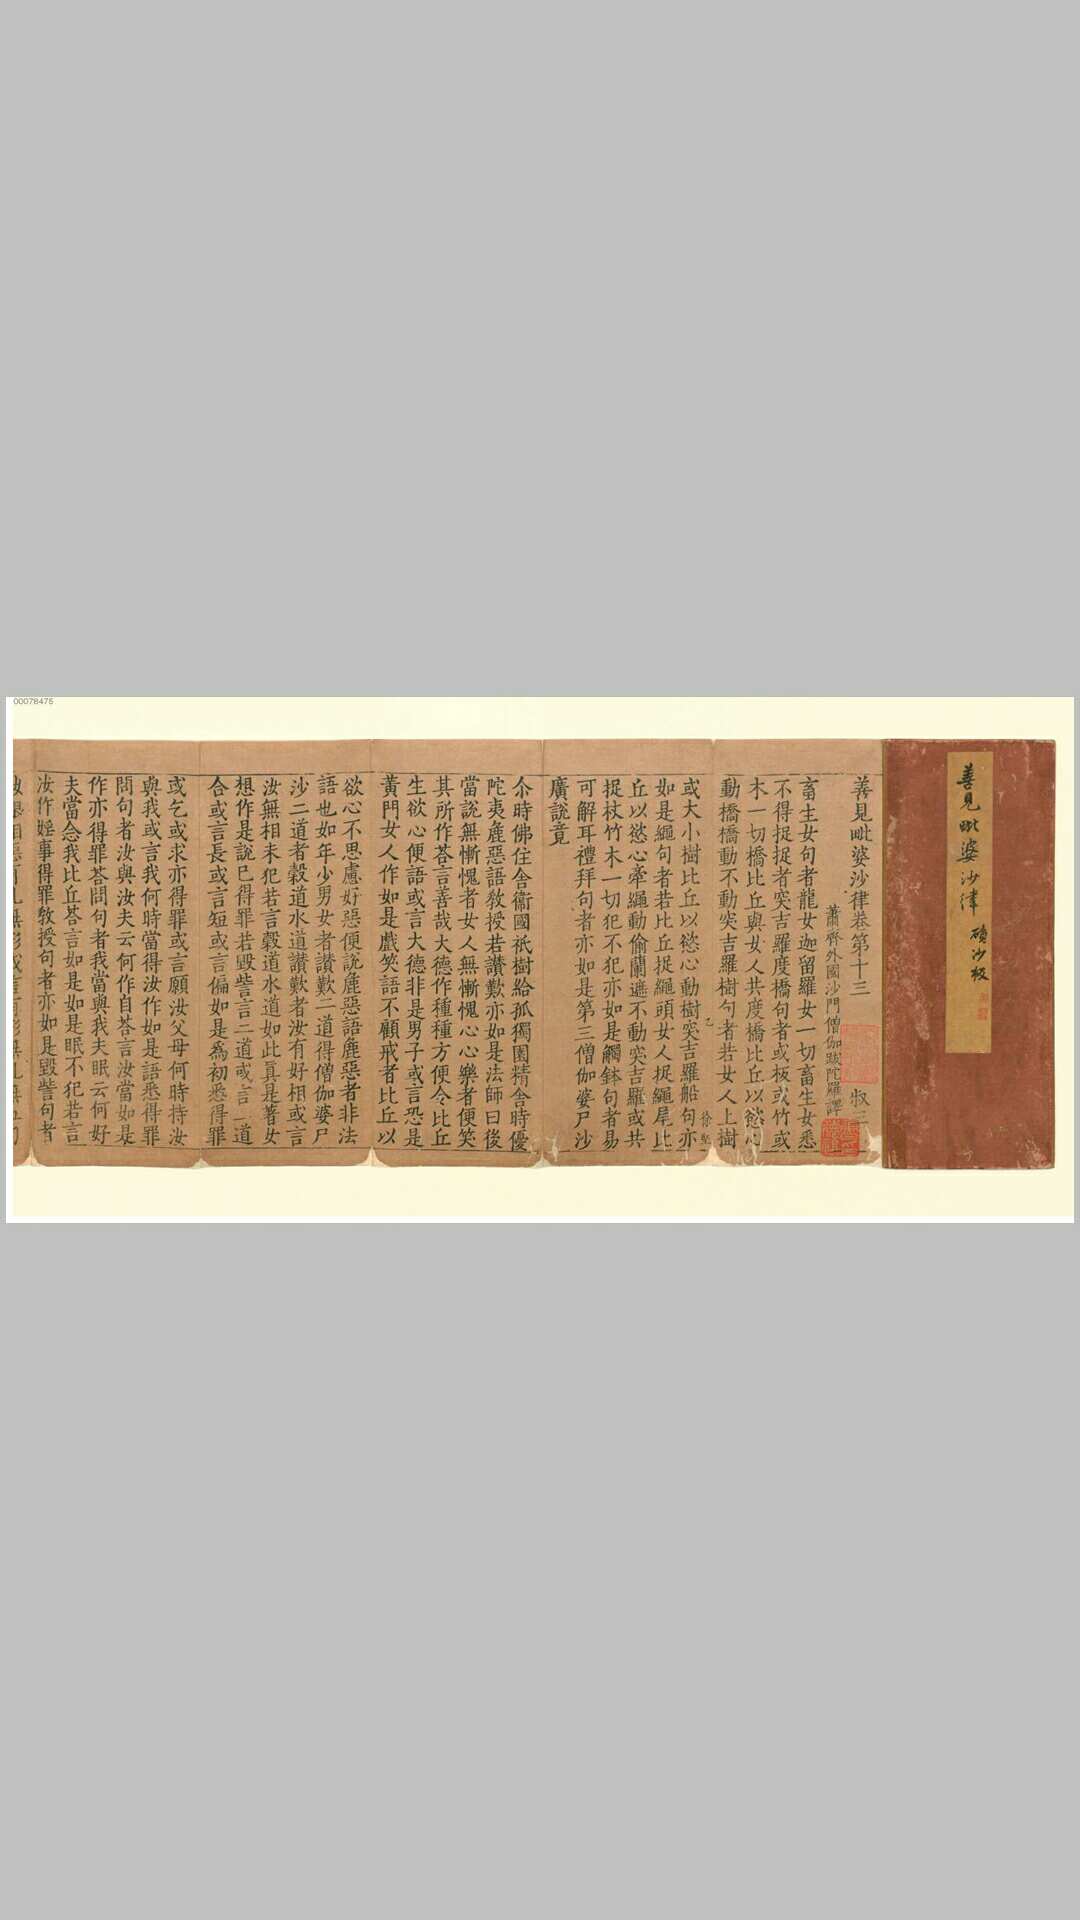 00078475
善見毗婆沙律 磧沙板
善見毗婆沙律卷第十三 㭊三
蕭齊外國沙門僧伽跋陀羅譯
畜生女句者龍女迦留羅女一切畜生女悉
不得捉捉者突吉羅度橋句者或板或竹或
木一切橋比丘與女人共度橋比丘以慾心
動橋橋動不動突吉羅樹句者若女人上樹
徐堅
或大小樹比丘以慾心動樹突吉羅船句亦
如是繩句者若比丘捉繩頭女人捉繩尾比
丘以慾心牽繩動偷蘭遮不動突吉羅或共
捉杖竹木一切犯不犯亦如是觸鉢句者易
可解耳禮拜句者亦如是第三僧伽婆尸沙
廣說竟
尒時佛住舍衞國祇樹給孤獨園精舍時優
陀夷麁惡語教授若讚歎亦如是法師曰後
當說無慚愧者女人無慚愧心心樂者便笑
其所作荅言善哉大德作種種方便令比丘
生欲心便語或言大德非是男子或言恐是
黃門女人作如是戲笑語不顧戒者比丘以
欲心不思慮好惡便說麁惡語麁惡者非法
語也如年少男女者讚歎二道得僧伽婆尸
沙二道者穀道水道讚歎者汝有好相或言
汝無相未犯若言穀道水道如此眞是著女
想作是說已得罪若毀呰言二道或言一道
合或言長或言短或言偏如是爲初悉得罪
或乞或求亦得罪或言願汝父母何時持汝
與我或言我何時當得汝作如是語悉得罪
問句者汝與汝夫云何作自荅言汝當如是
作亦得罪荅問句者我當與我夫眠云何好
夫當念我比丘荅言如是如是眠不犯若言
汝作婬事得罪敎授句者亦如是毀呰句者